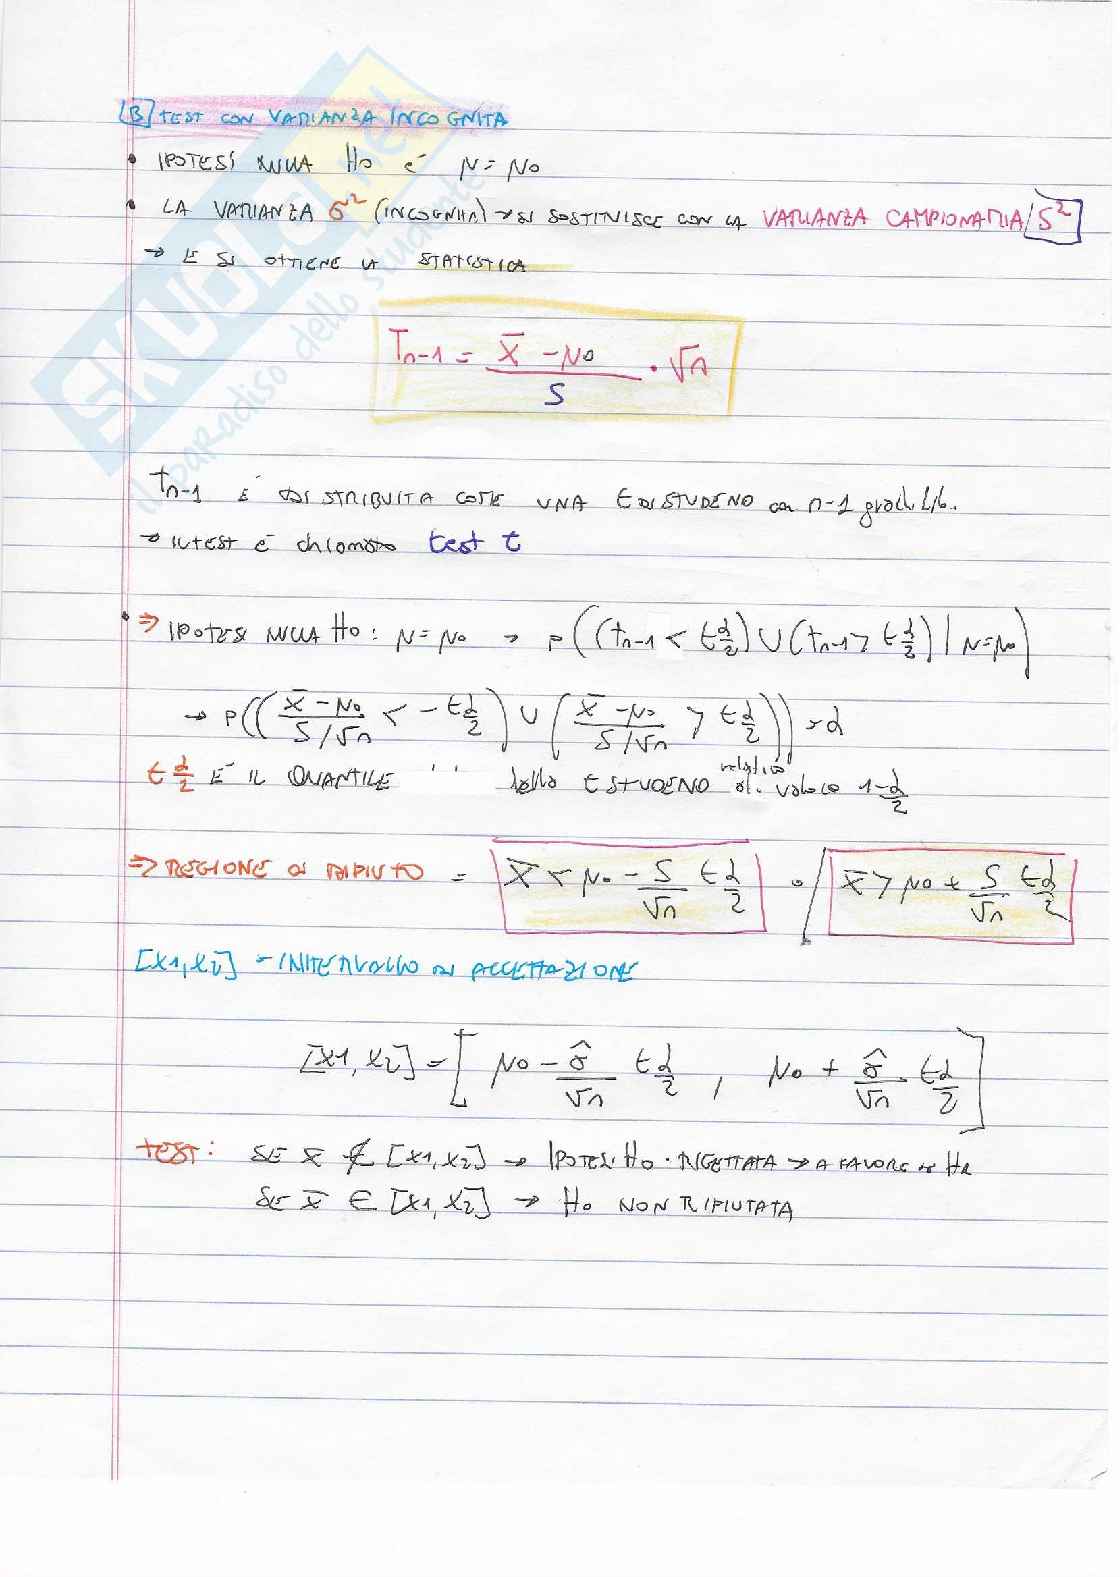 [B] TEST CON VARIANZA INCOGNITA
• IPOTESI NULLA H0 È μ = μ0
• LA VARIANZA σ² (INCOGNITA) → SI SOSTITUISCE CON LA VARIANZA CAMPIONARIA / S²
→ E SI OTTIENE LA STATISTICA
Tn-1 = x̄ - μ0 / S · √n
tn-1 È DISTRIBUITA COME UNA t DI STUDENO con n-1 gradi lib.
→ IL TEST È chiamato test t
• ⇒ IPOTESI NULLA H0: μ = μ0 → P((tn-1 < t α/2) ∪ (tn-1 > t α/2) | μ = μ0)
→ P((x̄ - μ0 / S/√n < - t α/2) ∪ (x̄ - μ0 / S/√n > t α/2)) = α
t α/2 È IL QUANTILE '' della t STUDENO relativo al valore 1 - α/2
⇒ REGIONE DI RIFIUTO = x̄ < μ0 - S/√n t α/2 o / x̄ > μ0 + S/√n t α/2
[x1, x2] = INTERVALLO DI ACCETTAZIONE
[x1, x2] = [μ0 - σ̂/√n t α/2 , μ0 + σ̂/√n · t α/2]
test: SE x̄ ∉ [x1, x2] → IPOTESI H0 · RIGETTATA → A FAVORE DI Ha
SE x̄ ∈ [x1, x2] → H0 NON RIFIUTATA
SKUOLA.net
il paradiso dello studente